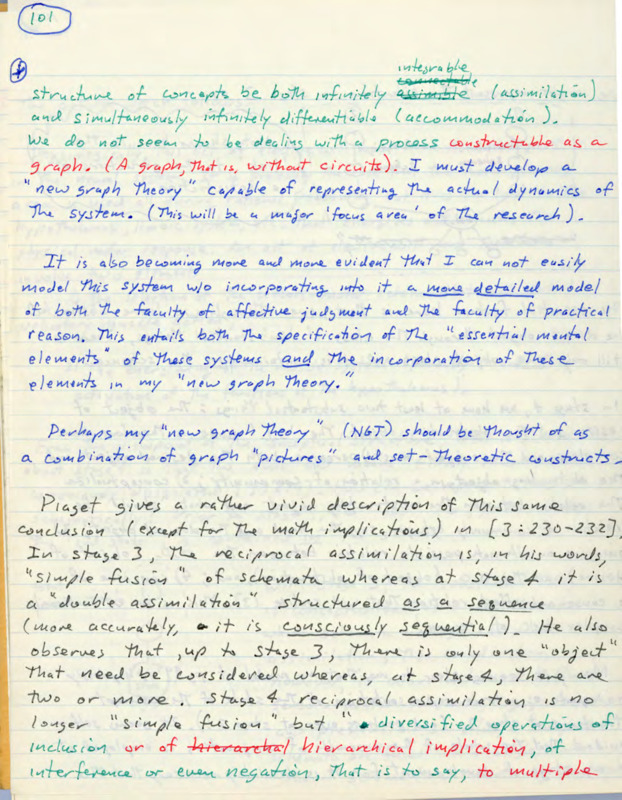 101
integrable
structure of concepts be both infinitely assimible (assimilation)
and simultaneously infinitely differentiable (accommodation).
We do not seem to be dealing with a process constructable as a
graph. (A graph, that is, without circuits). I must develop a
"new graph theory" capable of representing the actual dynamics of
the system. (This will be a major 'focus area' of the research).
It is also becoming more and more evident that I can not easily
model this system w/o incorporating into it a more detailed model
of both the faculty of affective judgment and the faculty of practical
reason. This entails both the specification of the "essential mental
elements" of these systems and the incorporation of these
elements in my "new graph theory."
Perhaps my "new graph theory" (NGT) should be thought of as
a combination of graph "pictures" and set-theoretic constructs.
Piaget gives a rather vivid description of this same
conclusion (except for the math implications) in [3:230-232].
In stage 3, the reciprocal assimilation is, in his words,
"simple fusion" of schemata whereas at stage 4 it is
a "double assimilation" structured as a sequence
(more accurately, it is consciously sequential). He also
observes that, up to stage 3, there is only one "object"
that need be considered whereas, at stage 4, there are
two or more. Stage 4 reciprocal assimilation is no
longer "simple fusion" but "diversified operations of
inclusion or of hierarchal hierarchical implication, of
interference or even negation, that is to say, to multiple